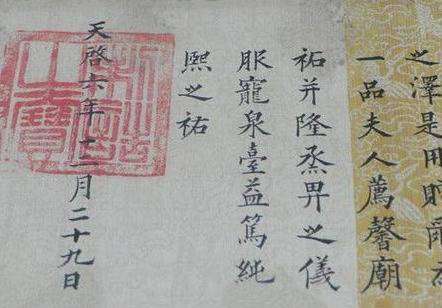 之澤是用
一品夫人薦馨廟
祏并隆烝畀之儀
服寵泉臺益篤純
熙之祐
天啓六年十二月二十九日
制誥之寶